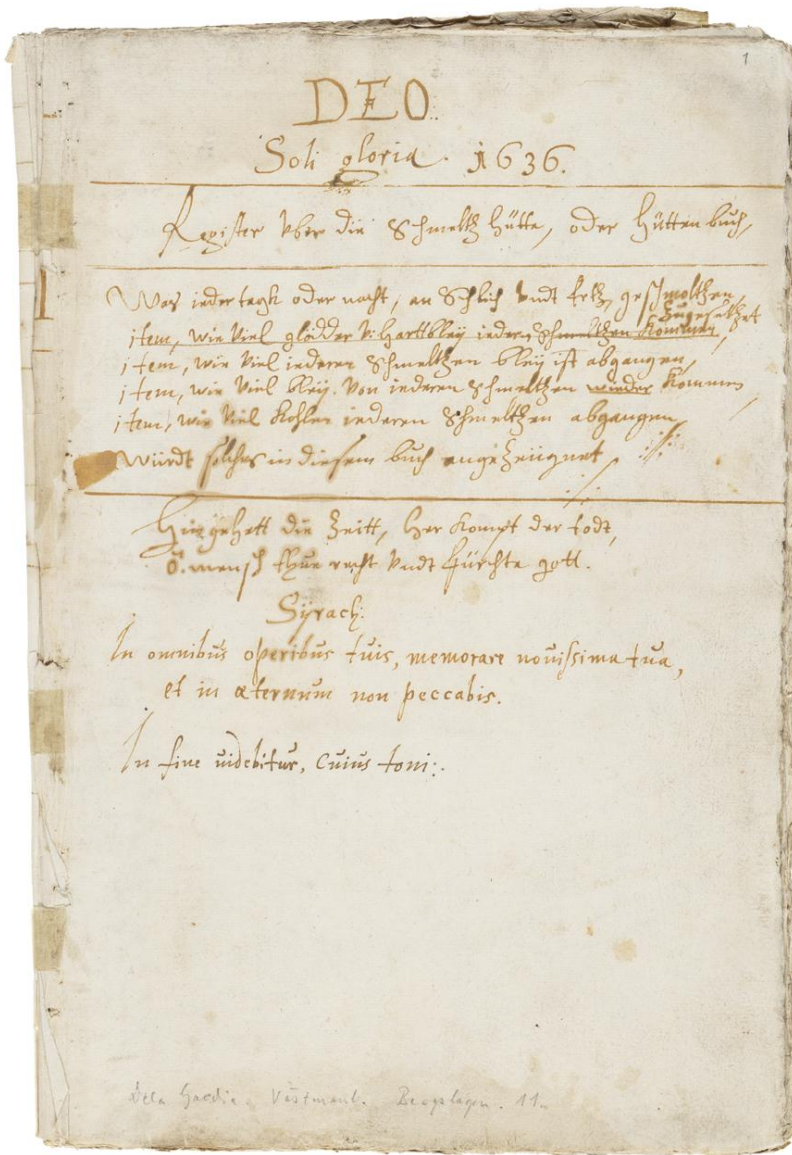 1
DEO.
Soli gloria. 1636.
Register vber die Schmeltz hütte, oder Hütten buch,
Was ieder tagk oder nacht, an Schlich vndt Ertz, geschmoltzen,
zugesetzet
item, wie viel glödde v: Harttbleÿ iedern Schmeltzen kommen,
item, wie viel iederen Schmeltzen bleÿ ist abgangen,
item, wie viel bleÿ. von iederen Schmeltzen wieder kommen,
item, wie viel kohlen iederen Schmeltzen abgangen,
würdt solches in diesem buch angezeugnet
Hin gehett die Zeitt, her kompt der todt,
O. mensch thue recht vndt fürchte gott.
Sÿrach:
In omnibus operibus tuis, memorare nouissima tua,
et in æternum non peccabis.
In fine uidebitur, cuius toni:.
De la Gardie. Västmanl. Bergslagen. 11.